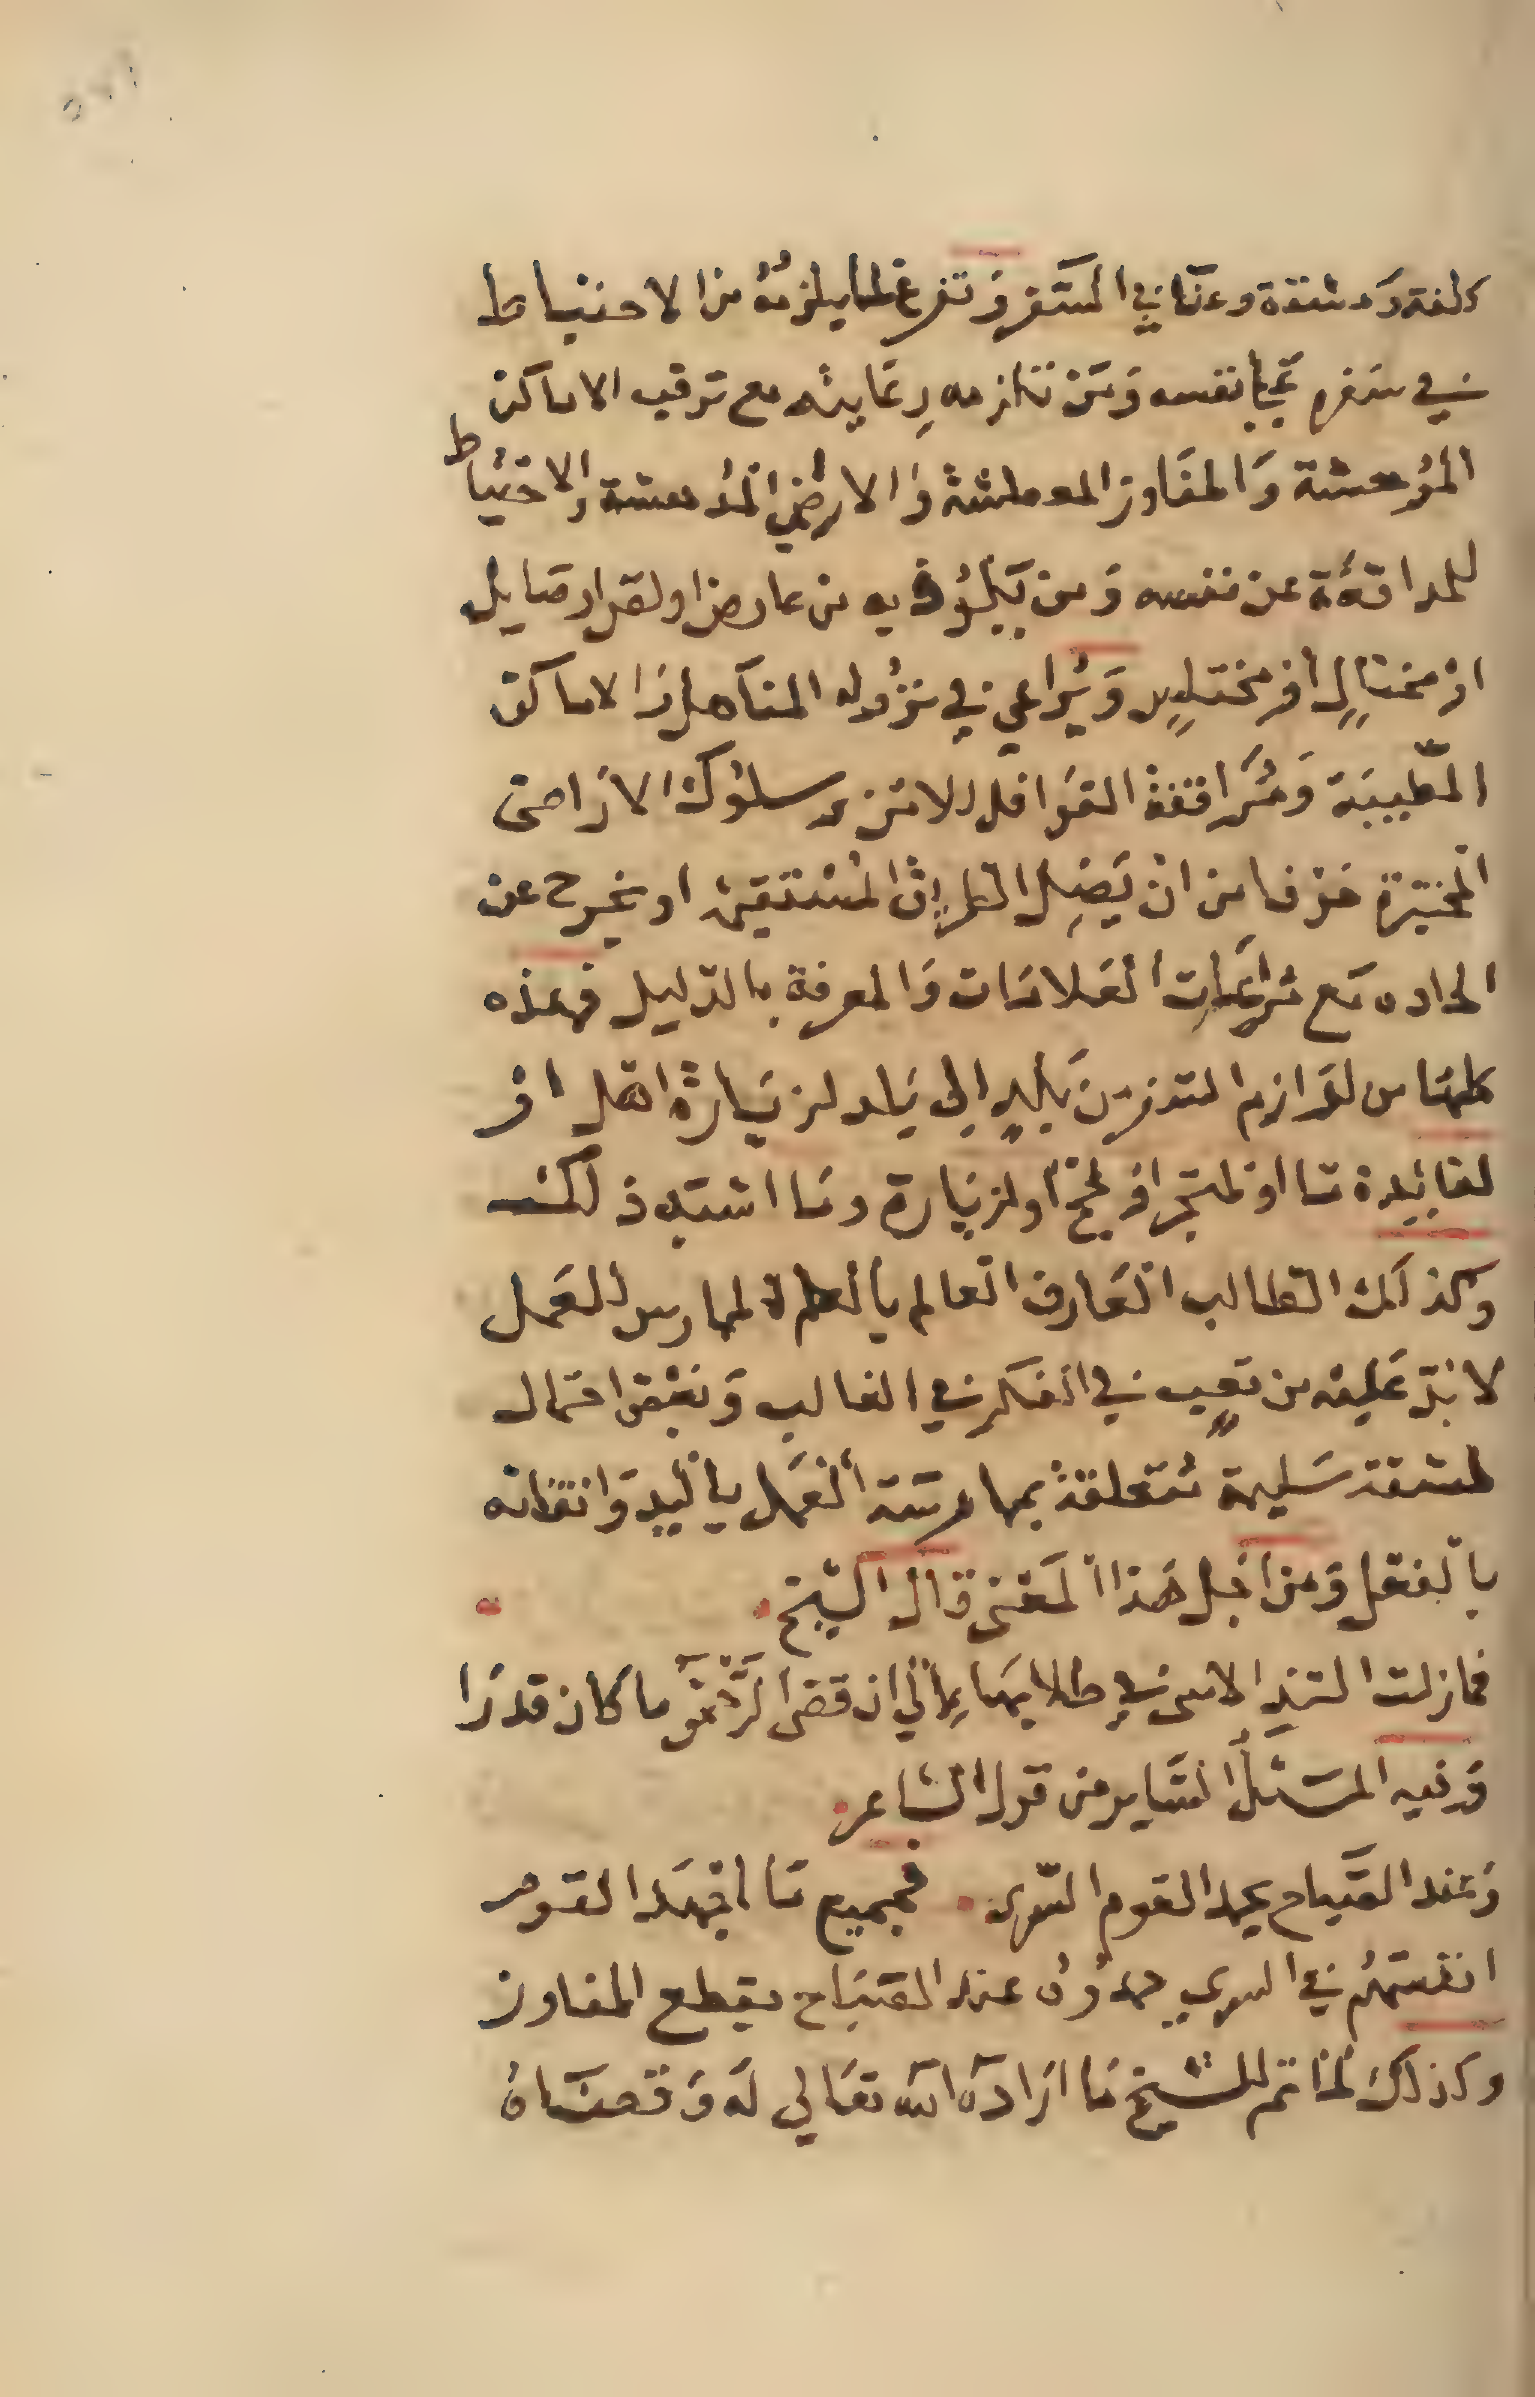 كلفة ومشقة وعنا في السفر وتفرغ لما يلزمه من الاحتياط
في سفره نجبا نفسه ومن تلزمه رعايته مع ترقب الاماكن
الموحشة والمفاوز المعطشة والاراضي المدهشة والاحتياط
للمدافعة عن نفسه ومن يبلوذ به من عارض او لص او صايل
او مختال او مختلس ويراعي في نزوله المناهل والاماكن
الطيبة ومرافقة القوافل الامنة وسلوك الاراضي
المخبرة خوفا من ان يضل الطريق المستقيم او يخرج عن
الجاده مع مراعات العلامات والمعرفة بالدليل فهذه
كلها من لوازم السفر من بلد الى بلد لزيارة اهل او
لفايدة ما او لمتجر او لحج او لزيارة وما اشبه ذلك
وكذلك الطالب العارف العالم بالعلم الممارس العمل
لا بد عليه من تعب في الفكر في الغالب وبعض احتمال
لمشقة سليمة متعلقة بممارسة العمل باليد واتقانه
بالفعل ومن اجل هذا المعنى قال الشيخ
فما زلت السند الاسى في طلابها الى ان قضى الرحمن ما كان قدرا
وفيه المثل الساير من قول الشاعر
وعند الصباح يحمد القوم السرى فجميع ما اجهد القوم
انفسهم في السري حمدوه عند الصباح بقطع المفاوز
وكذلك لما تم للشيخ ما اراده الله تعالى له وقضاه